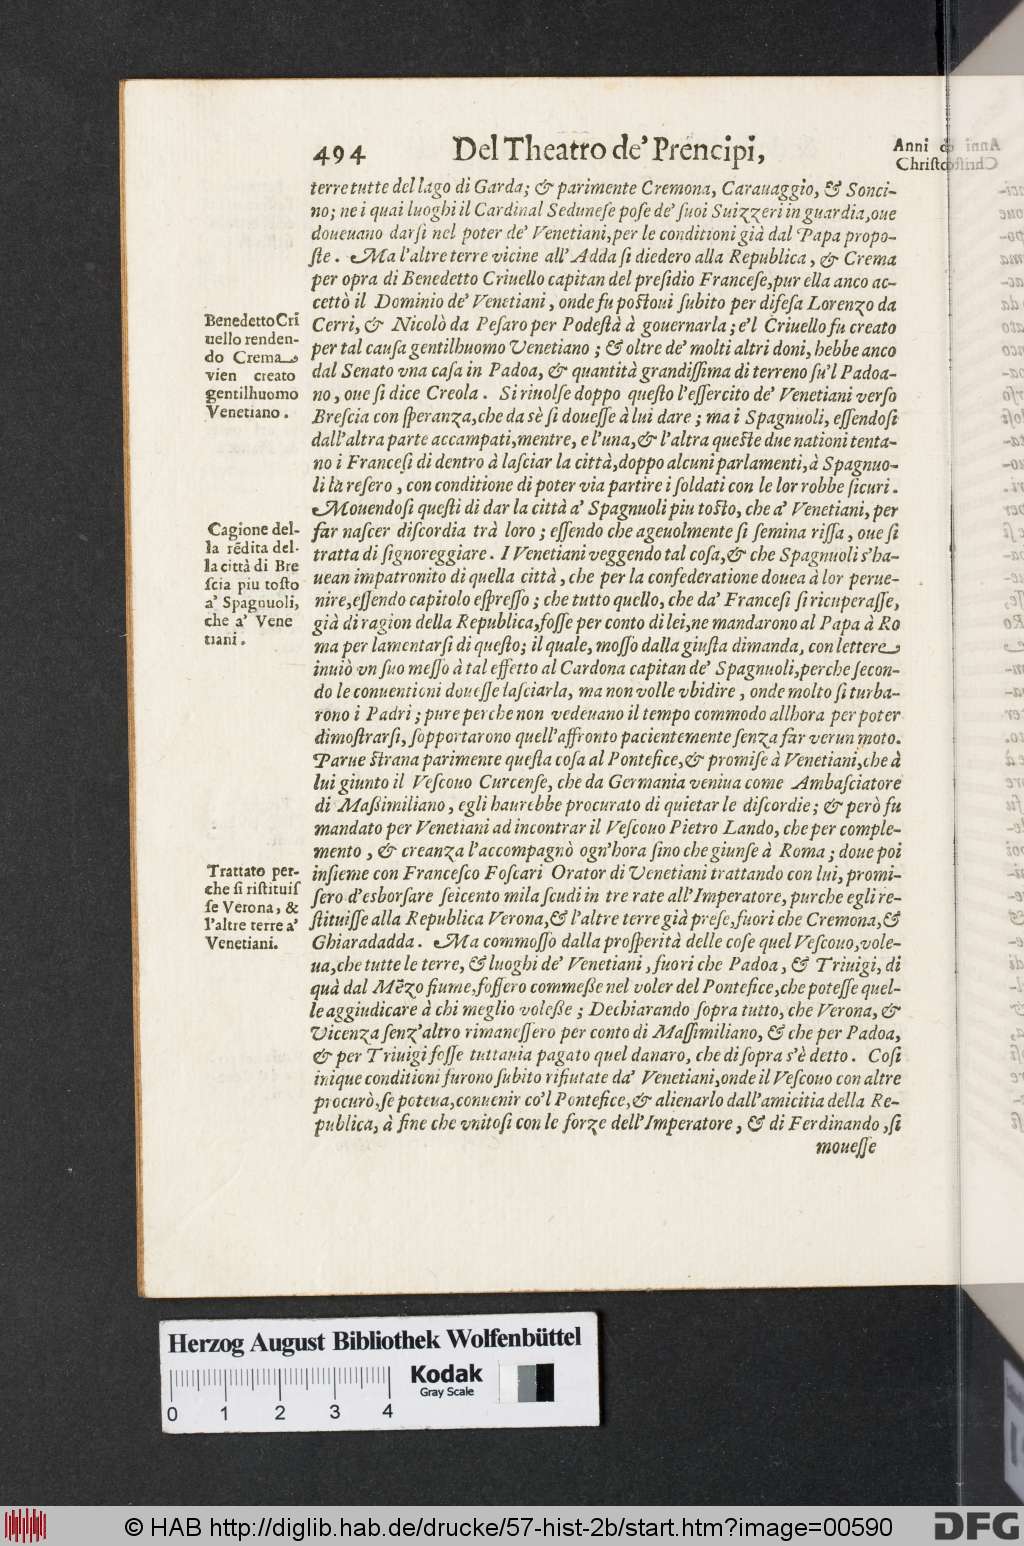 494 Del Theatro de' Prencipi,
Anni di
Christo
terre tutte del lago di Garda; & parimente Cremona, Carauaggio, & Sonci-
no; ne i quai luoghi il Cardinal Sedunese pose de' suoi Suizzeri in guardia, oue
doueuano darsi nel poter de' Venetiani, per le conditioni già dal Papa propo-
ste. Ma l'altre terre vicine all'Adda si diedero alla Republica, & Crema
per opra di Benedetto Criuello capitan del presidio Francese, pur ella anco ac-
cettò il Dominio de' Venetiani, onde fu postoui subito per difesa Lorenzo da
Cerri, & Nicolò da Pesaro per Podestà à gouernarla; e'l Criuello fu creato
per tal causa gentilhuomo Venetiano; & oltre de' molti altri doni, hebbe anco
dal Senato vna casa in Padoa, & quantità grandissima di terreno su'l Padoa-
no, oue si dice Creola. Si riuolse doppo questo l'essercito de' Venetiani verso
Brescia con speranza, che da sè si douesse à lui dare; ma i Spagnuoli, essendosi
dall'altra parte accampati, mentre, e l'una, & l'altra queste due nationi tenta-
no i Francesi di dentro à lasciar la città, doppo alcuni parlamenti, à Spagnuo-
li là resero, con conditione di poter via partire i soldati con le lor robbe sicuri.
Mouendosi questi di dar la città a' Spagnuoli piu tosto, che a' Venetiani, per
far nascer discordia trà loro; essendo che ageuolmente si semina rissa, oue si
tratta di signoreggiare. I Venetiani veggendo tal cosa, & che Spagnuoli s'ha-
uean impatronito di quella città, che per la confederatione douea à lor perue-
nire, essendo capitolo espresso; che tutto quello, che da' Francesi si ricuperasse,
già di ragion della Republica, fosse per conto di lei, ne mandarono al Papa à Ro
ma per lamentarsi di questo; il quale, mosso dalla giusta dimanda, con lettere
inuiò vn suo messo à tal effetto al Cardona capitan de' Spagnuoli, perche secon-
do le conuentioni douesse lasciarla, ma non volle vbidire, onde molto si turba-
rono i Padri; pure perche non vedeuano il tempo commodo allhora per poter
dimostrarsi, sopportarono quell'affronto pacientemente senza far verun moto.
Parue strana parimente questa cosa al Pontefice, & promise à Venetiani, che à
lui giunto il Vescouo Curcense, che da Germania veniua come Ambasciatore
di Maßimiliano, egli haurebbe procurato di quietar le discordie; & però fu
mandato per Venetiani ad incontrar il Vescouo Pietro Lando, che per comple-
mento, & creanza l'accompagnò ogn'hora sino che giunse à Roma; doue poi
insieme con Francesco Foscari Orator di Venetiani trattando con lui, promi-
sero d'esborsare seicento mila scudi in tre rate all'Imperatore, purche egli re-
stituisse alla Republica Verona, & l'altre terre già prese, fuori che Cremona, &
Ghiaradadda. Ma commosso dalla prosperità delle cose quel Vescouo, vole-
ua, che tutte le terre, & luoghi de' Venetiani, fuori che Padoa, & Triuigi, di
quà dal Mẽzo fiume, fossero commeße nel voler del Pontefice, che potesse quel-
le aggiudicare à chi meglio voleße; Dechiarando sopra tutto, che Verona, &
Vicenza senz'altro rimanessero per conto di Massimiliano, & che per Padoa,
& per Triuigi fosse tuttauia pagato quel danaro, che di sopra s'è detto. Cosi
inique conditioni furono subito rifiutate da' Venetiani, onde il Vescouo con altre
procurò, se poteua, conuenir co'l Pontefice, & alienarlo dall'amicitia della Re-
publica, à fine che vnitosi con le forze dell'Imperatore, & di Ferdinando, si
mouesse
Benedetto Cri
uello renden-
do Crema
vien creato
gentilhuomo
Venetiano.
Cagione del-
la rẽdita del-
la città di Bre
scia piu tosto
a' Spagnuoli,
che a' Vene
tiani.
Trattato per-
che si ristituis
se Verona, &
l'altre terre a'
Venetiani.
Herzog August Bibliothek Wolfenbüttel
Kodak
Gray Scale
0 1 2 3 4
© HAB http://diglib.hab.de/drucke/57-hist-2b/start.htm?image=00590
DFG